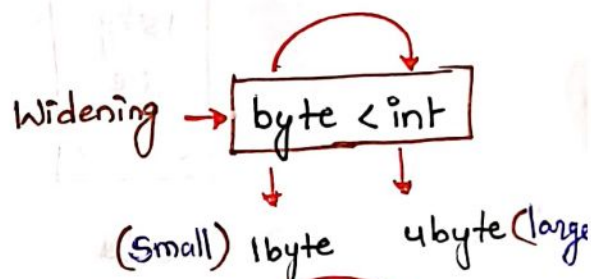 Widening → byte < int
(Small) 1byte 4byte (large